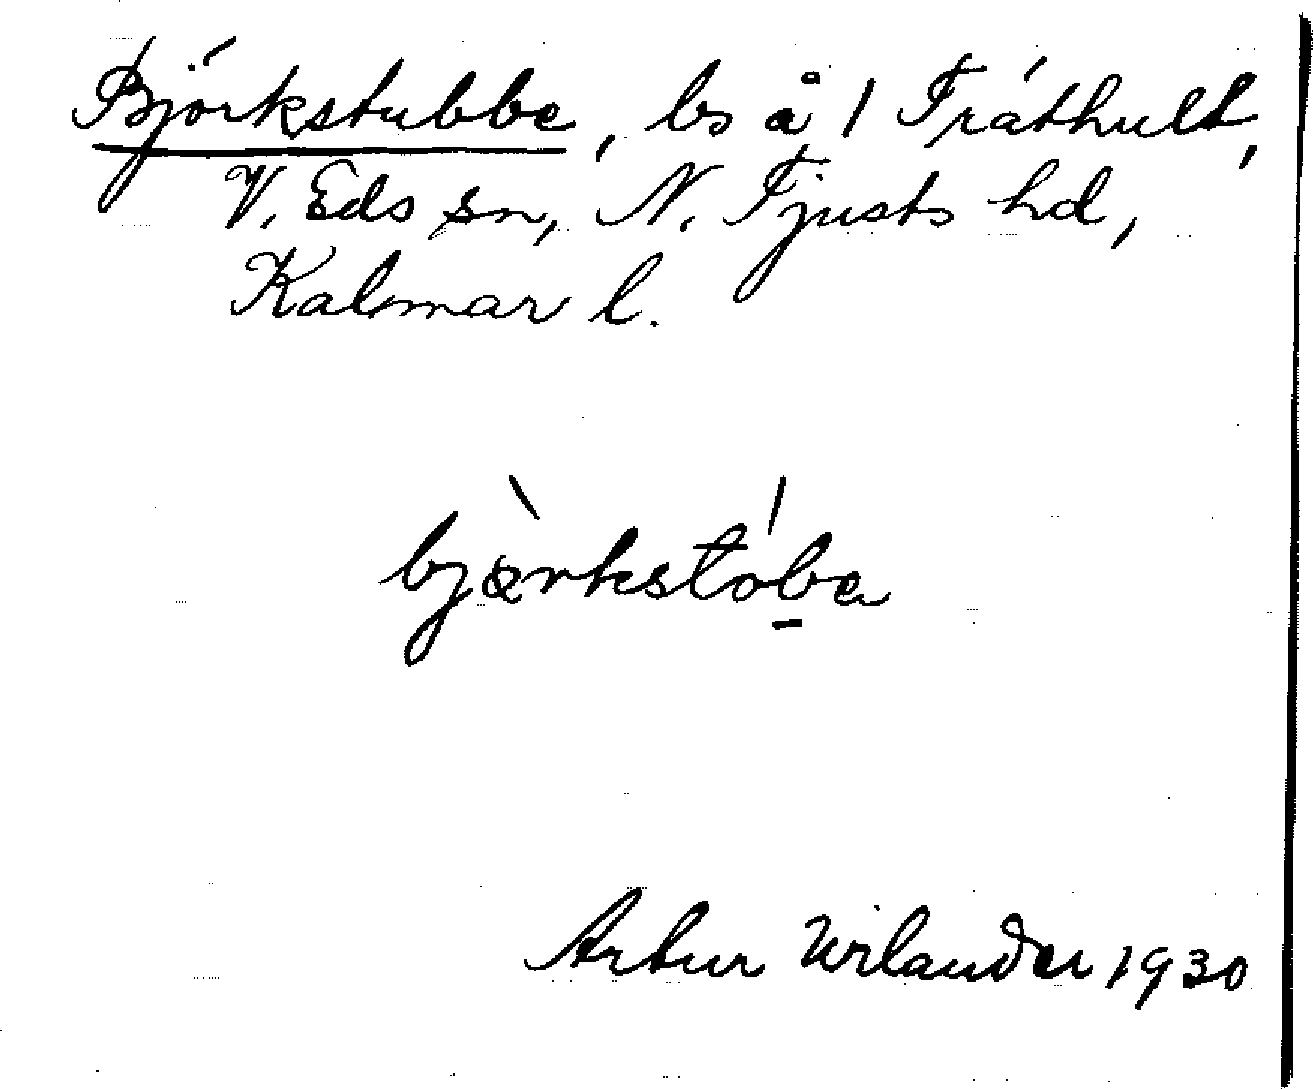 Björkstubbe, ls å 1 Fráthult,
V. Eds sn, N. Tjusts hd,
Kalmar l.
bjæ̀rkstóba
Artur Wilander 1930